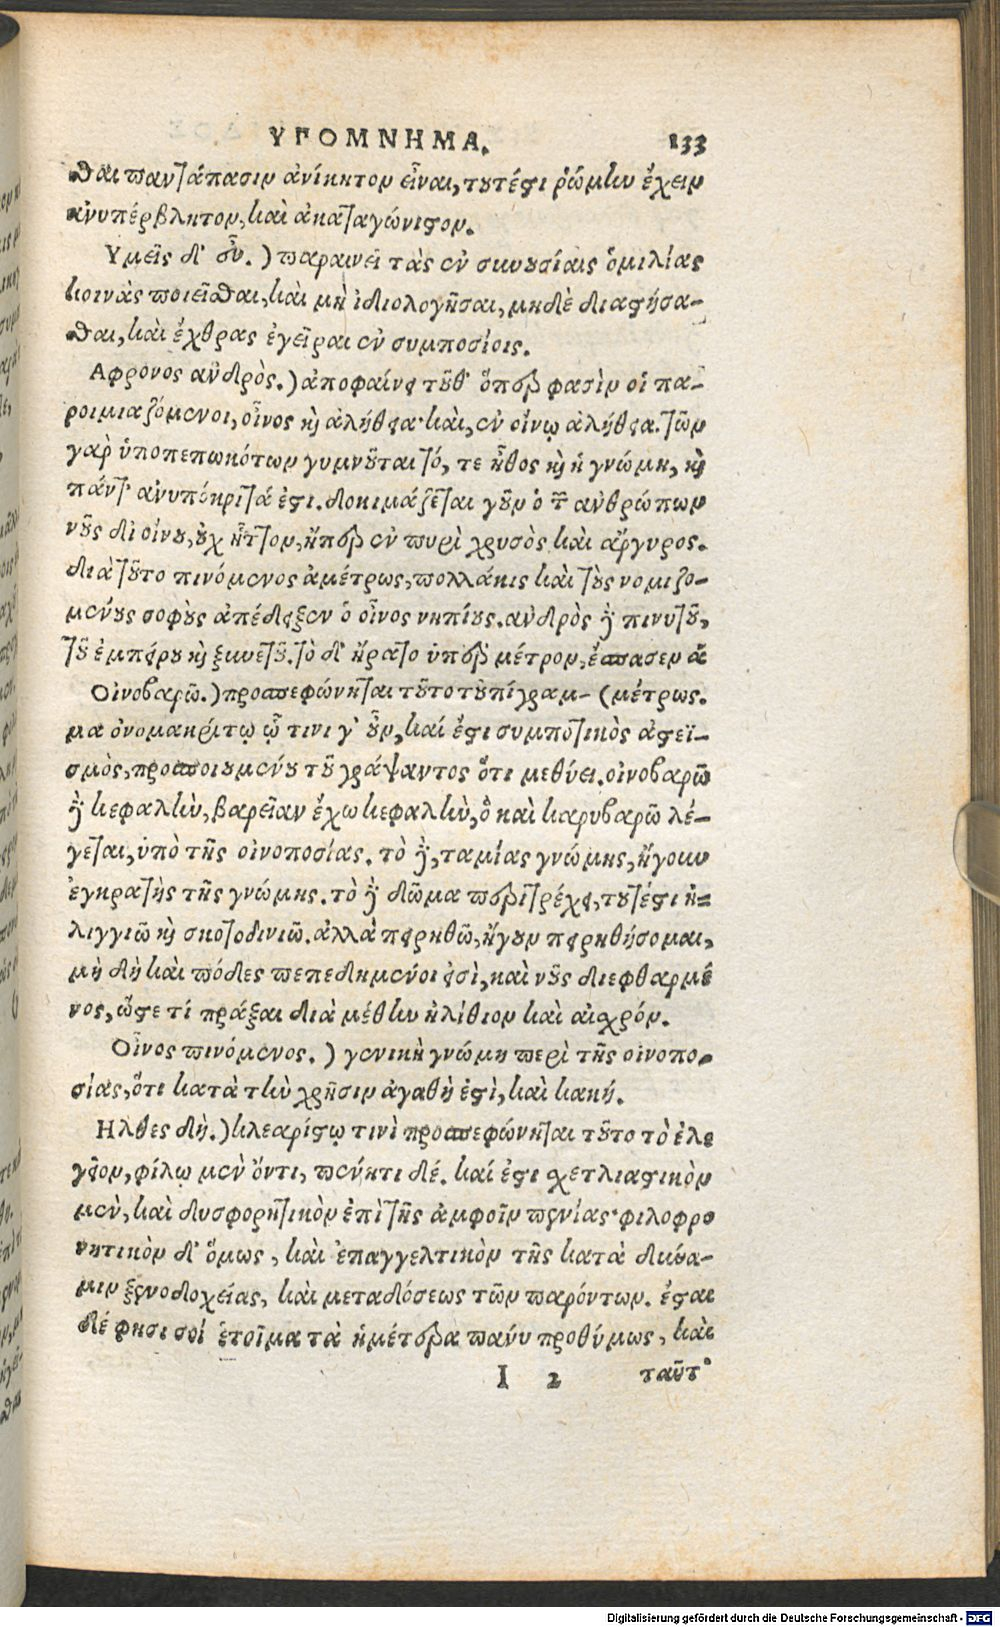 ΥΠΟΜΝΗΜΑ. 133
σθαι παντάπασιν ἀνίκητον εἶναι, τουτέστι ῥώμην ἔχειν
ἀνυπέρβλητον, καὶ ἀκαταγώνιστον.
Υμεῖς δ' οὖν.) παραινεῖ τὰς ἐν συνουσίαις ὁμιλίας
κοινὰς ποιεῖσθαι, καὶ μὴ ἰδιολογῆσαι, μηδὲ διαστήσα-
σθαι, καὶ ἔχθρας ἐγεῖραι ἐν συμποσίοις.
Αφρονος ἀνδρὸς.) ἀποφαίνει τοῦθ' ὅπερ φασὶν οἱ πα-
ροιμιαζόμενοι, οἶνος καὶ ἀλήθεια· καὶ, ἐν οἴνῳ ἀλήθεια. τῶν
γὰρ ὑποπεπωκότων γυμνοῦται τό, τε ἦθος καὶ ἡ γνώμη, καὶ
πάντ' ἀνυπόκριτά ἐστι. δοκιμάζεται γοῦν ὁ τῶν ἀνθρώπων
νοῦς δι οἴνου, οὐχ ἧττον, ἤπερ ἐν πυρὶ χρυσὸς καὶ ἄργυρος.
διὰ τοῦτο πινόμενος ἀμέτρως, πολλάκις καὶ τοὺς νομιζο-
μένους σοφοὺς ἀπέδειξεν ὁ οἶνος νηπίους. ἀνδρὸς δὲ πινυτοῦ,
τοῦ ἐμπείρου καὶ ξυνετοῦ. τὸ δ' ἤρατο ὑπὲρ μέτρον, ἔσπασεν ἀ
Οἰνοβαρῶ.) προσπεφώνηται τοῦτο τοὐπίγραμ- (μέτρως.
μα ὀνομακρίτῳ ᾧ τινι γ' οὖν, καί ἐστι συμποτικὸς ἀστεϊ-
σμὸς, προσποιουμένου τοῦ γράψαντος ὅτι μεθύει. οἰνοβαρῶ
δὲ κεφαλὴν, βαρεῖαν ἔχω κεφαλὴν, ὃ καὶ καρυβαρῶ λέ-
γεται, ὑπὸ τῆς οἰνοποσίας. τὸ δὲ, ταμίας γνώμης, ἤγουν
ἐγκρατὴς τῆς γνώμης. τὸ δὲ δῶμα περιτρέχει, τουτέστι ἰ-
λιγγιῶ καὶ σκοτοδινιῶ. ἀλλὰ πειρηθῶ, ἤγουν πειρηθήσομαι,
μὴ δὴ καὶ πόδες πεπεδημένοι εἰσὶ, καὶ νοῦς διεφθαρμέ
νος, ὥστε τί πράξαι διὰ μέθην ἠλίθιον καὶ αἰσχρόν.
Οἶνος πινόμενος.) γενικὴ γνώμη περὶ τῆς οἰνοπο-
σίας, ὅτι κατὰ τὴν χρῆσιν ἀγαθὴ ἐστὶ, καὶ κακή.
Ηλθες δὴ.) κλεαρίστῳ τινὶ προσπεφώνηται τοῦτο τὸ ἐλε
γεῖον, φίλῳ μὲν ὄντι, πένητι δέ. καί ἐστι σχετλιαστικὸν
μὲν, καὶ δυσφορητικὸν ἐπὶ τῆς ἀμφοῖν πενίας· φιλοφρο
νητικὸν δ' ὅμως, καὶ ἐπαγγελτικὸν τῆς κατὰ δύνα-
μιν ξενοδοχείας, καὶ μεταδόσεως τῶν παρόντων. ἔσται
δέ φησι σοί ἑτοῖμα τὰ ἡμέτερα πάνυ προθύμως, καὶ
I 2 ταῦτ'
Digitalisierung gefördert durch die Deutsche Forschungsgemeinschaft - DFG